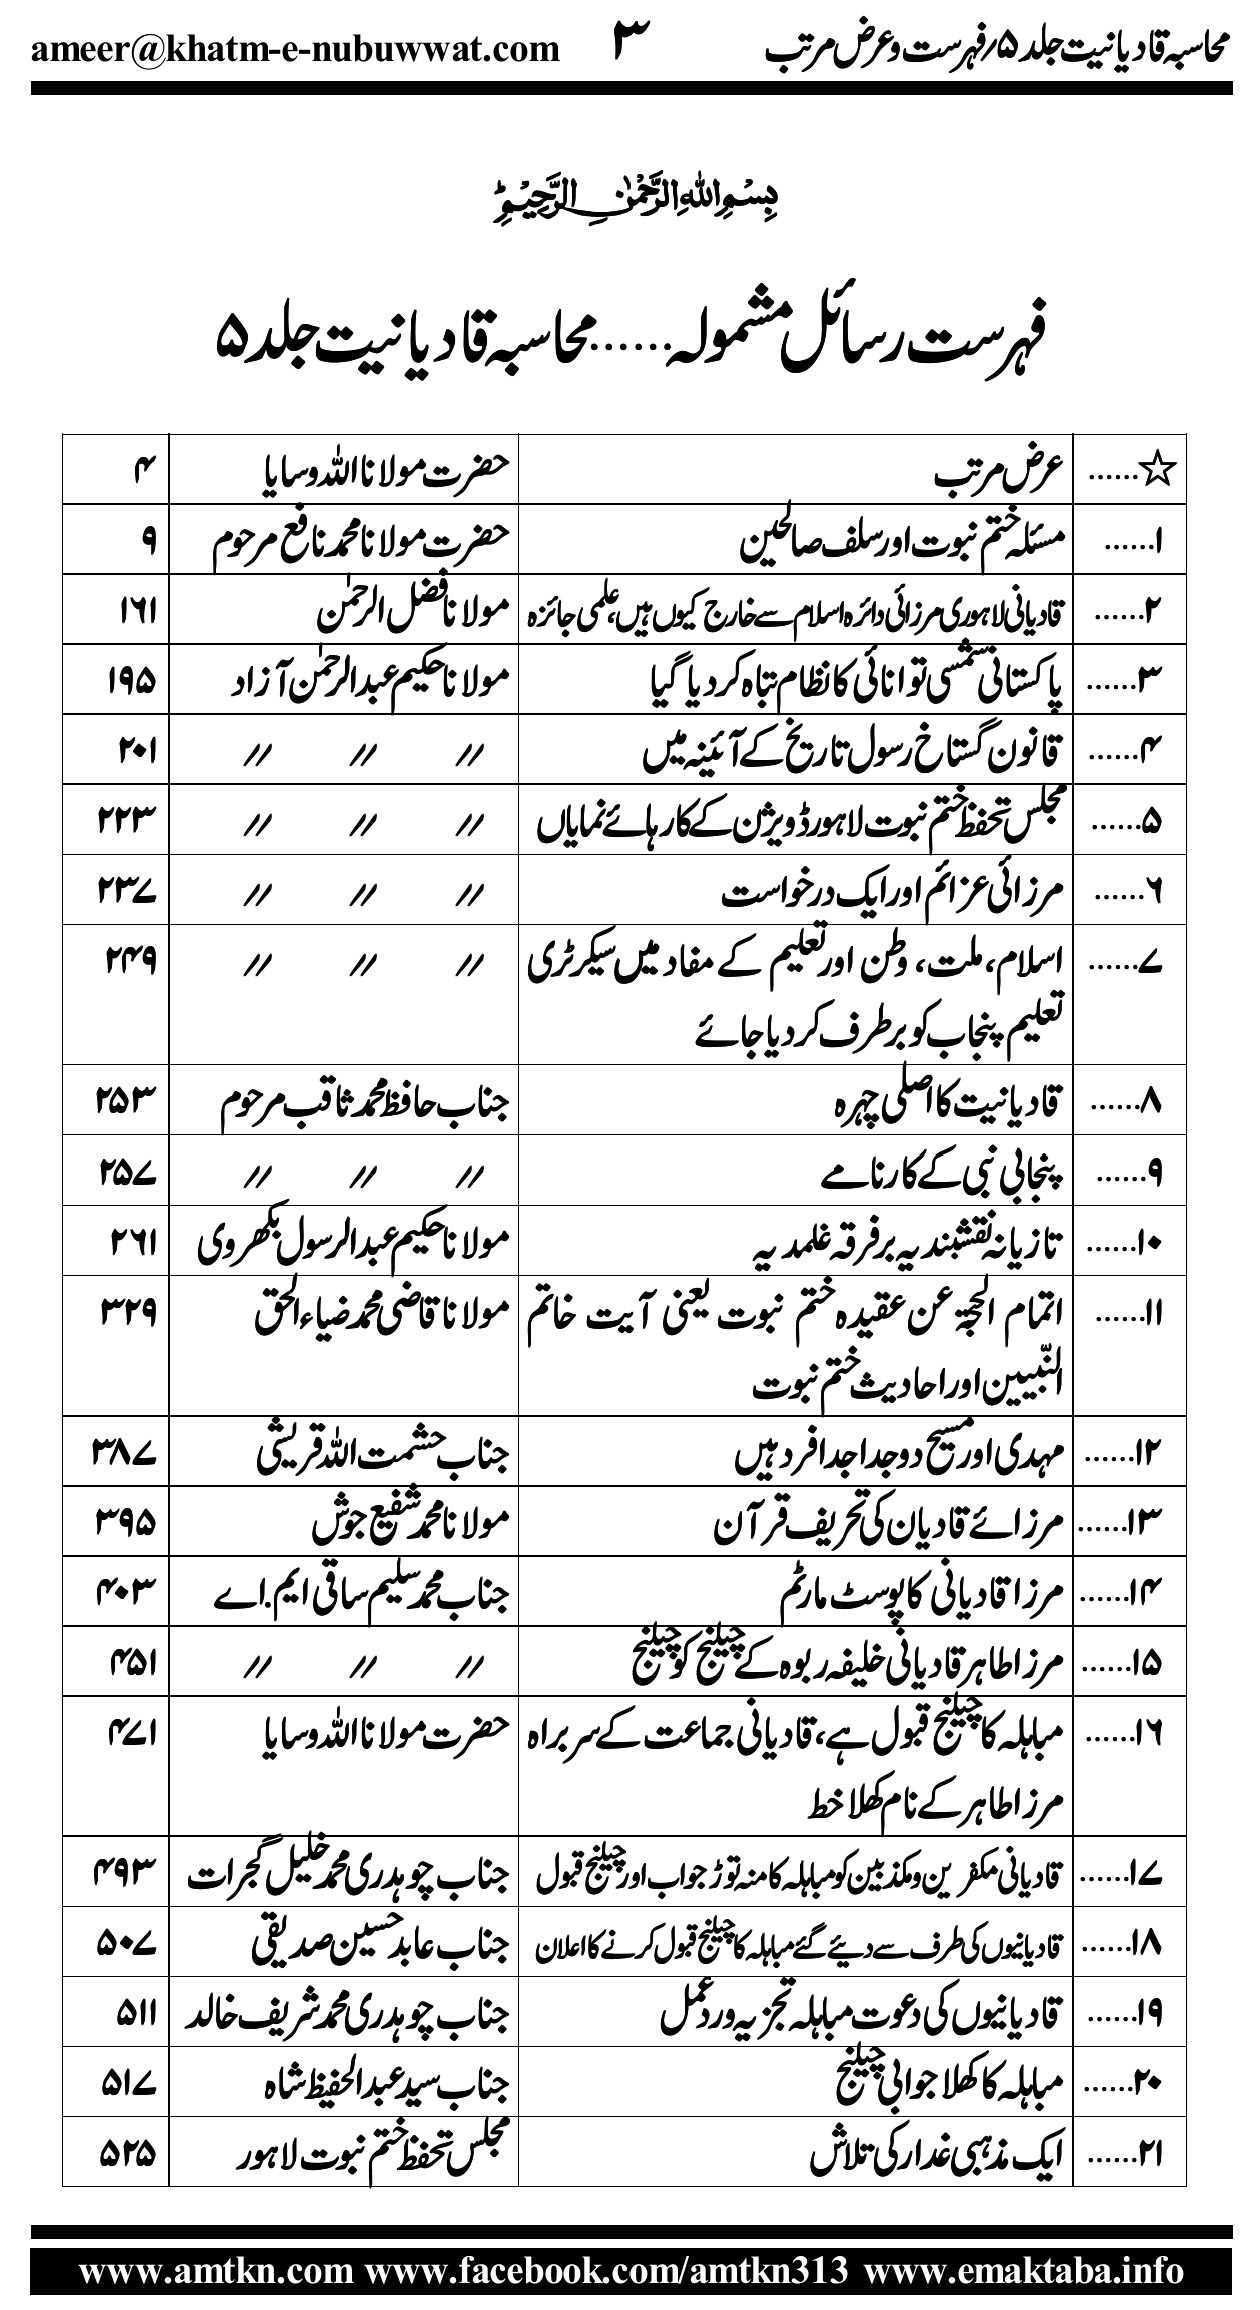 محاسبہ قادیانیت جلد ۵؍فہرست و عرض مرتب ۳ ameer@khatm-e-nubuwwat.com
بِسْمِ اللهِ الرَّحْمٰنِ الرَّحِيْمِ
فہرست رسائل مشمولہ......محاسبہ قادیانیت جلد ۵
☆...... عرض مرتب حضرت مولانا اللہ وسایا ۴
۱...... مسئلہ ختم نبوت اور سلف صالحین حضرت مولانا محمد نافع مرحوم ۹
۲...... قادیانی لاہوری مرزائی دائرہ اسلام سے خارج کیوں ہیں، علمی جائزہ مولانا فضل الرحمٰن ۱۶۱
۳...... پاکستانی شمسی توانائی کا نظام تباہ کر دیا گیا مولانا حکیم عبدالرحمٰن آزاد ۱۹۵
۴...... قانون گستاخ رسول تاریخ کے آئینہ میں // // // ۲۰۱
۵...... مجلس تحفظ ختم نبوت لاہور ڈویژن کے کارہائے نمایاں // // // ۲۲۳
۶...... مرزائی عزائم اور ایک درخواست // // // ۲۳۷
۷...... اسلام، ملت، وطن اور تعلیم کے مفاد میں سیکرٹری // // // ۲۴۹
تعلیم پنجاب کو برطرف کر دیا جائے
۸...... قادیانیت کا اصلی چہرہ جناب حافظ محمد ثاقب مرحوم ۲۵۳
۹...... پنجابی نبی کے کارنامے // // // ۲۵۷
۱۰...... تازیانہ نقشبندیہ بر فرقہ غلمدیہ مولانا حکیم عبدالرسول بکھروی ۲۶۱
۱۱...... اتمام الحجۃ عن عقیدہ ختم نبوت یعنی آیت خاتم مولانا قاضی محمد ضیاء الحق ۳۲۹
النّبیین اور احادیث ختم نبوت
۱۲...... مہدی اور مسیح دو جدا جدا فرد ہیں جناب حشمت اللہ قریشی ۳۸۷
۱۳...... مرزائے قادیان کی تحریف قرآن مولانا محمد شفیع جوش ۳۹۵
۱۴...... مرزا قادیانی کا پوسٹ مارٹم جناب محمد سلیم ساقی ایم.اے ۴۰۳
۱۵...... مرزا طاہر قادیانی خلیفہ ربوہ کے چیلنج کو چیلنج // // // ۴۵۱
۱۶...... مباہلہ کا چیلنج قبول ہے، قادیانی جماعت کے سربراہ حضرت مولانا اللہ وسایا ۴۷۱
مرزا طاہر کے نام کھلا خط
۱۷...... قادیانی مکفرین و مکذبین کو مباہلہ کا منہ توڑ جواب اور چیلنج قبول جناب چوہدری محمد خلیل گجرات ۴۹۳
۱۸...... قادیانیوں کی طرف سے دیئے گئے مباہلہ کا چیلنج قبول کرنے کا اعلان جناب عابد حسین صدیقی ۵۰۷
۱۹...... قادیانیوں کی دعوت مباہلہ تجزیہ و ردعمل جناب چوہدری محمد شریف خالد ۵۱۱
۲۰...... مباہلہ کا کھلا جوابی چیلنج جناب سید عبدالحفیظ شاہ ۵۱۷
۲۱...... ایک مذہبی غدار کی تلاش مجلس تحفظ ختم نبوت لاہور ۵۲۵
www.amtkn.com www.facebook.com/amtkn313 www.emaktaba.info